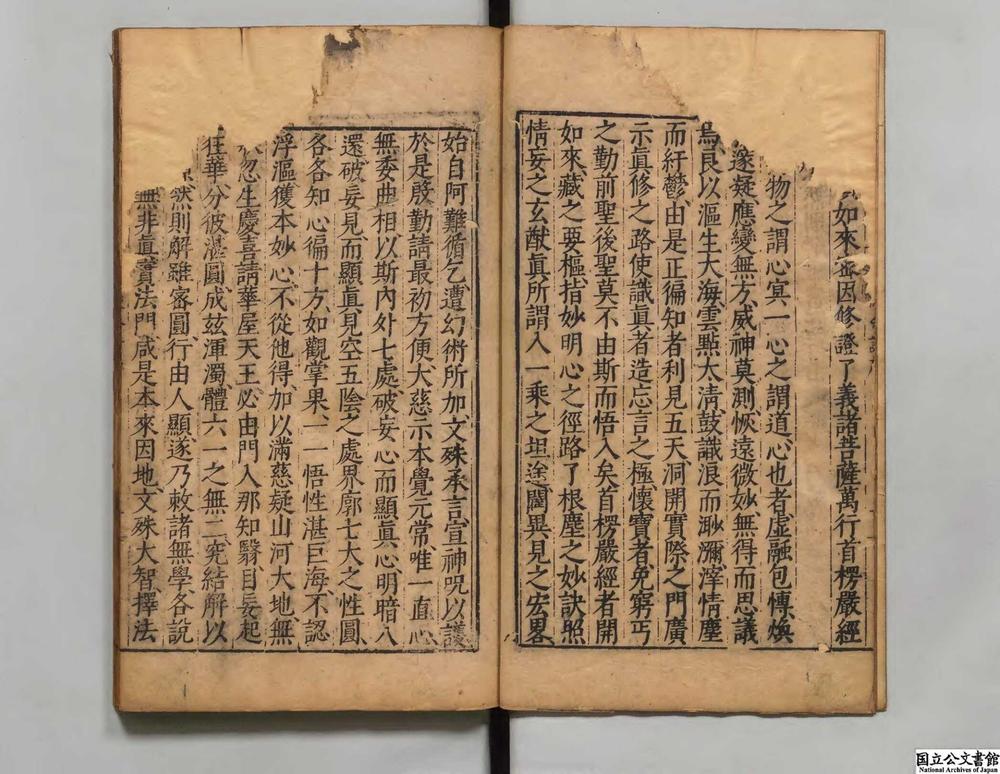 如來密因修證了義諸菩薩萬行首楞嚴經
物之謂心冥一心之謂道心也者虛融包博煥
邃疑應變無方威神莫測恢遠微妙無得而思議
焉良以漚生大海雲點太清鼓識浪而渺瀰滓情塵
而紆鬱由是正徧知者利見五天洞開實際之門廣
示眞修之路使識眞者造忘言之極懷寶者免窮丐
之勤前聖後聖莫不由斯而悟入矣首楞嚴經者開
如來藏之要樞指妙明心之徑路了根塵之妙訣照
情妄之玄猷眞所謂入一乘之坦途闢異見之宏畧
始自阿難循乞遭幻術所加文殊承言宣神呪以護
於是殷勤請最初方便大慈示本覺元常唯一直心
無委曲相以斯內外七處破妄心而顯眞心明暗八
還破妄見而顯眞見空五陰之處界廓七大之性圓
各各知心徧十方如觀掌果一一悟性湛巨海不認
浮漚獲本妙心不從他得加以滿慈疑山河大地無
忽生慶喜請華屋天王必由門入那知翳目妄起
狂華分彼湛圓成兹渾濁體六一之無二究結解以
然則解雖審圓行由人顯遂乃敕諸無學各說
無非眞實法門咸是本來因地文殊大智擇法
国立公文書館
National Archives of Japan